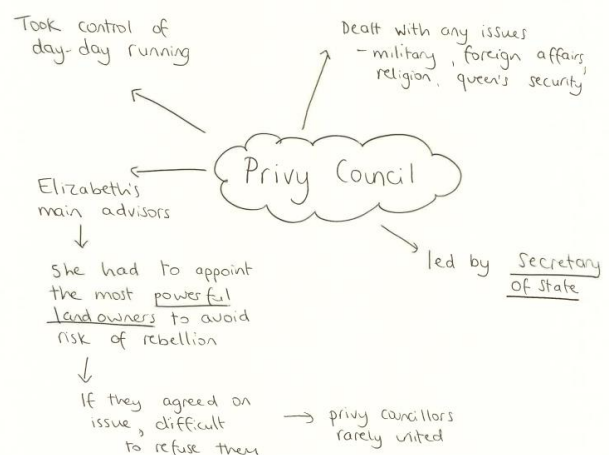 Took control of
day-day running
Dealt with any issues
- military, foreign affairs,
religion, queen's security
Privy Council
Elizabeth's
main advisors
She had to appoint
the most powerful
landowners to avoid
risk of rebellion
If they agreed on
issue, difficult
to refuse them
→ privy councillors
rarely united
led by Secretary
of State